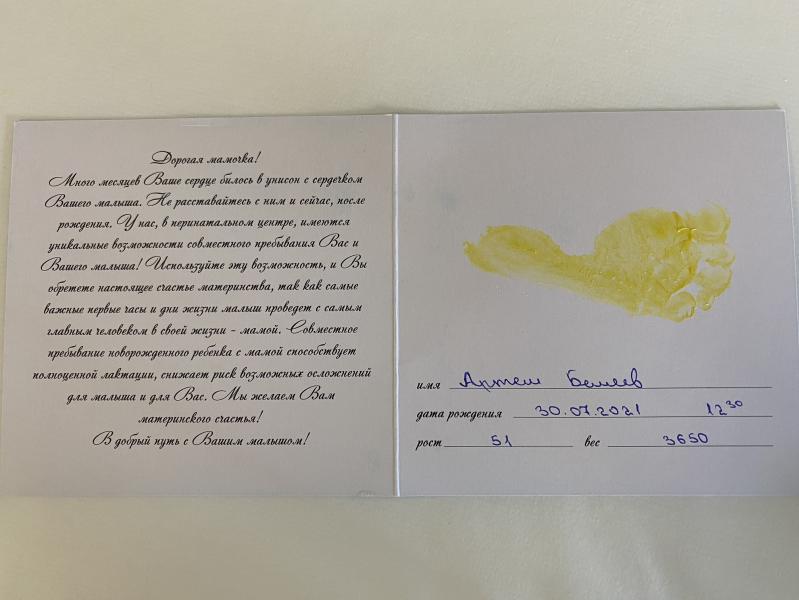 Дорогая мамочка!
Много месяцев Ваше сердце билось в унисон с сердечком
Вашего малыша. Не расставайтесь с ним и сейчас, после
рождения. У нас, в перинатальном центре, имеются
уникальные возможности совместного пребывания Вас и
Вашего малыша! Используйте эту возможность, и Вы
обретете настоящее счастье материнства, так как самые
важные первые часы и дни жизни малыш проведет с самым
главным человеком в своей жизни - мамой. Совместное
пребывание новорожденного ребенка с мамой способствует
полноценной лактации, снижает риск возможных осложнений
для малыша и для Вас. Мы желаем Вам
материнского счастья!
В добрый путь с Вашим малышом!
имя Артем
дата рождения 30.07.2021 12 30
рост 51 вес 3650